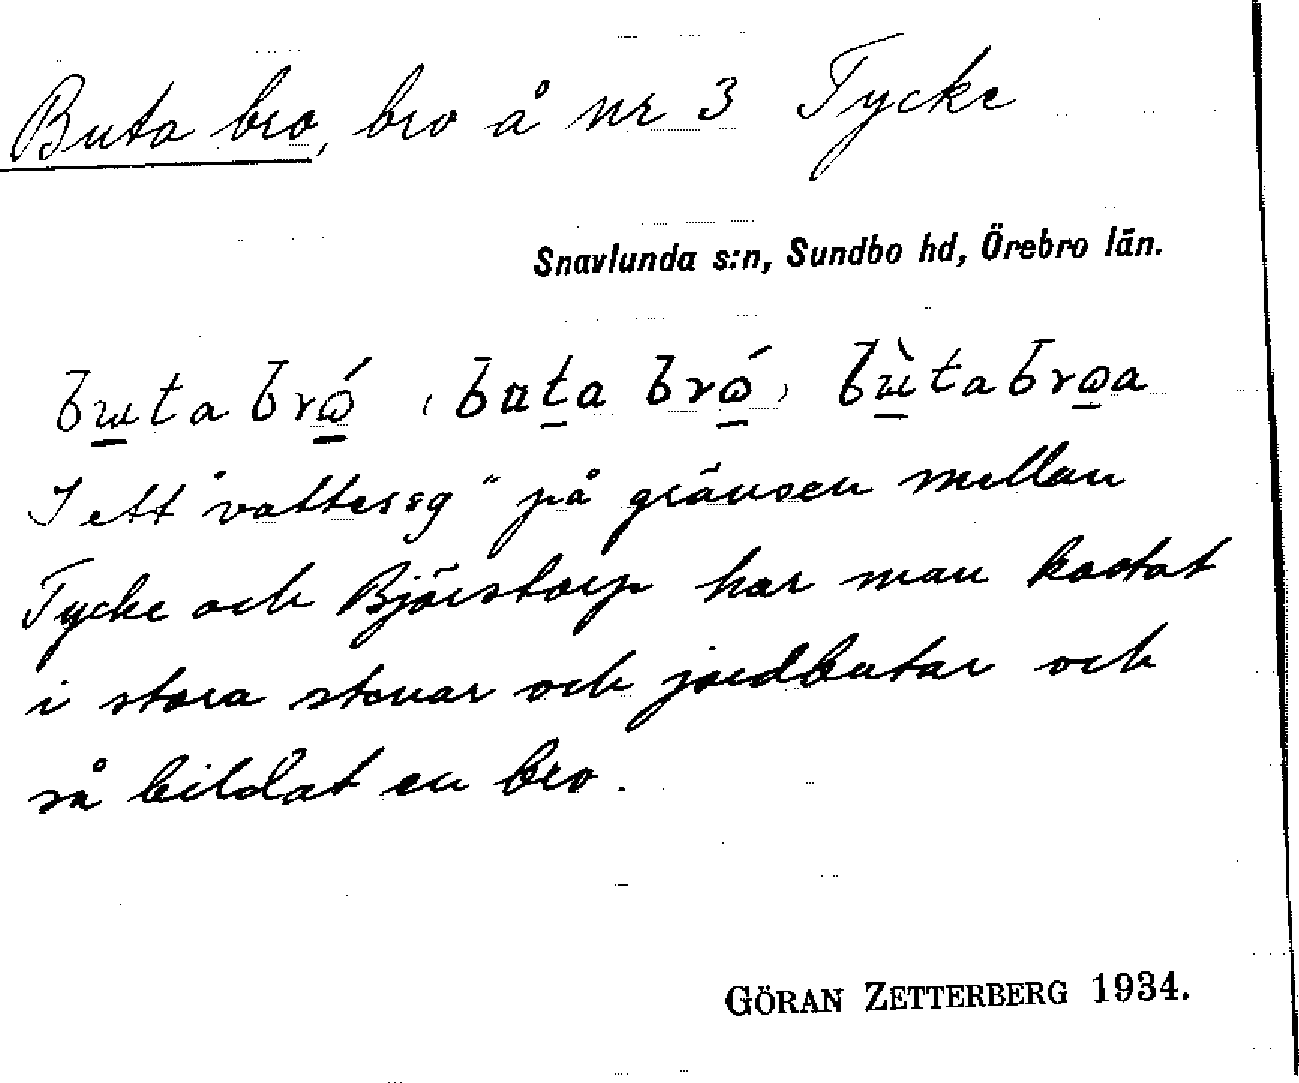 Buta bro, bro å nr 3 Tycke
Snavlunda s:n, Sundbo hd, Örebro län.
I ett "vattesyg" på gränsen mellan
Tycke och Björstorp har man kastat
i stora stenar och jordbutar och
så bildat en bro.
GÖRAN ZETTERBERG 1934.